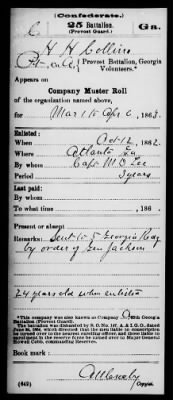 (Confederate.)
C 25 Battalion. Ga.
(Provost Guard.)
H H Collins
Pvt, Co. A, { Provost Battalion, Georgia Volunteers.*
Appears on
Company Muster Roll
of the organization named above,
for Mar 1 to Apr 6, 1863.
Enlisted:
When Oct 12, 1862.
Where Atlanta Ga
By whom Capt M O Lee
Period 3 years
Last paid:
By whom
To what time , 186 .
Present or absent
Remarks: Sent to 5 Georgia Regt
by order of Gen Jackson
24 years old when enlisted
*This company was also known as Company Georgia
(Provost Guard).
The battalion was disbanded by S. O. No. 147, A. & I. G. O., dated
June 24, 1864, which directed the men liable to conscription
to be turned over to the nearest enrolling officer, and those liable to
enrollment in the reserve force be turned over to Major General
Howell Cobb, commanding Reserves.
Book mark:
(642)
Copyist.